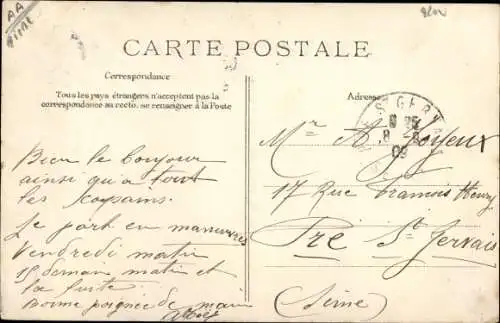 AA
CARTE POSTALE
Correspondance
Tous les pays étrangers n'acceptent pas la
correspondance au recto. se renseigner à la Poste
Adresse
ST GER
8 25
8
09
Bien le bonjour
ainsi qu'a tout
les
Je part en manuvres
Vendredi matin
15 demain matin et
la suite
Bonne poignée de main
Mr A. Joyeux
17 Rue Francois Henry
Pré St Gervais
(Seine)